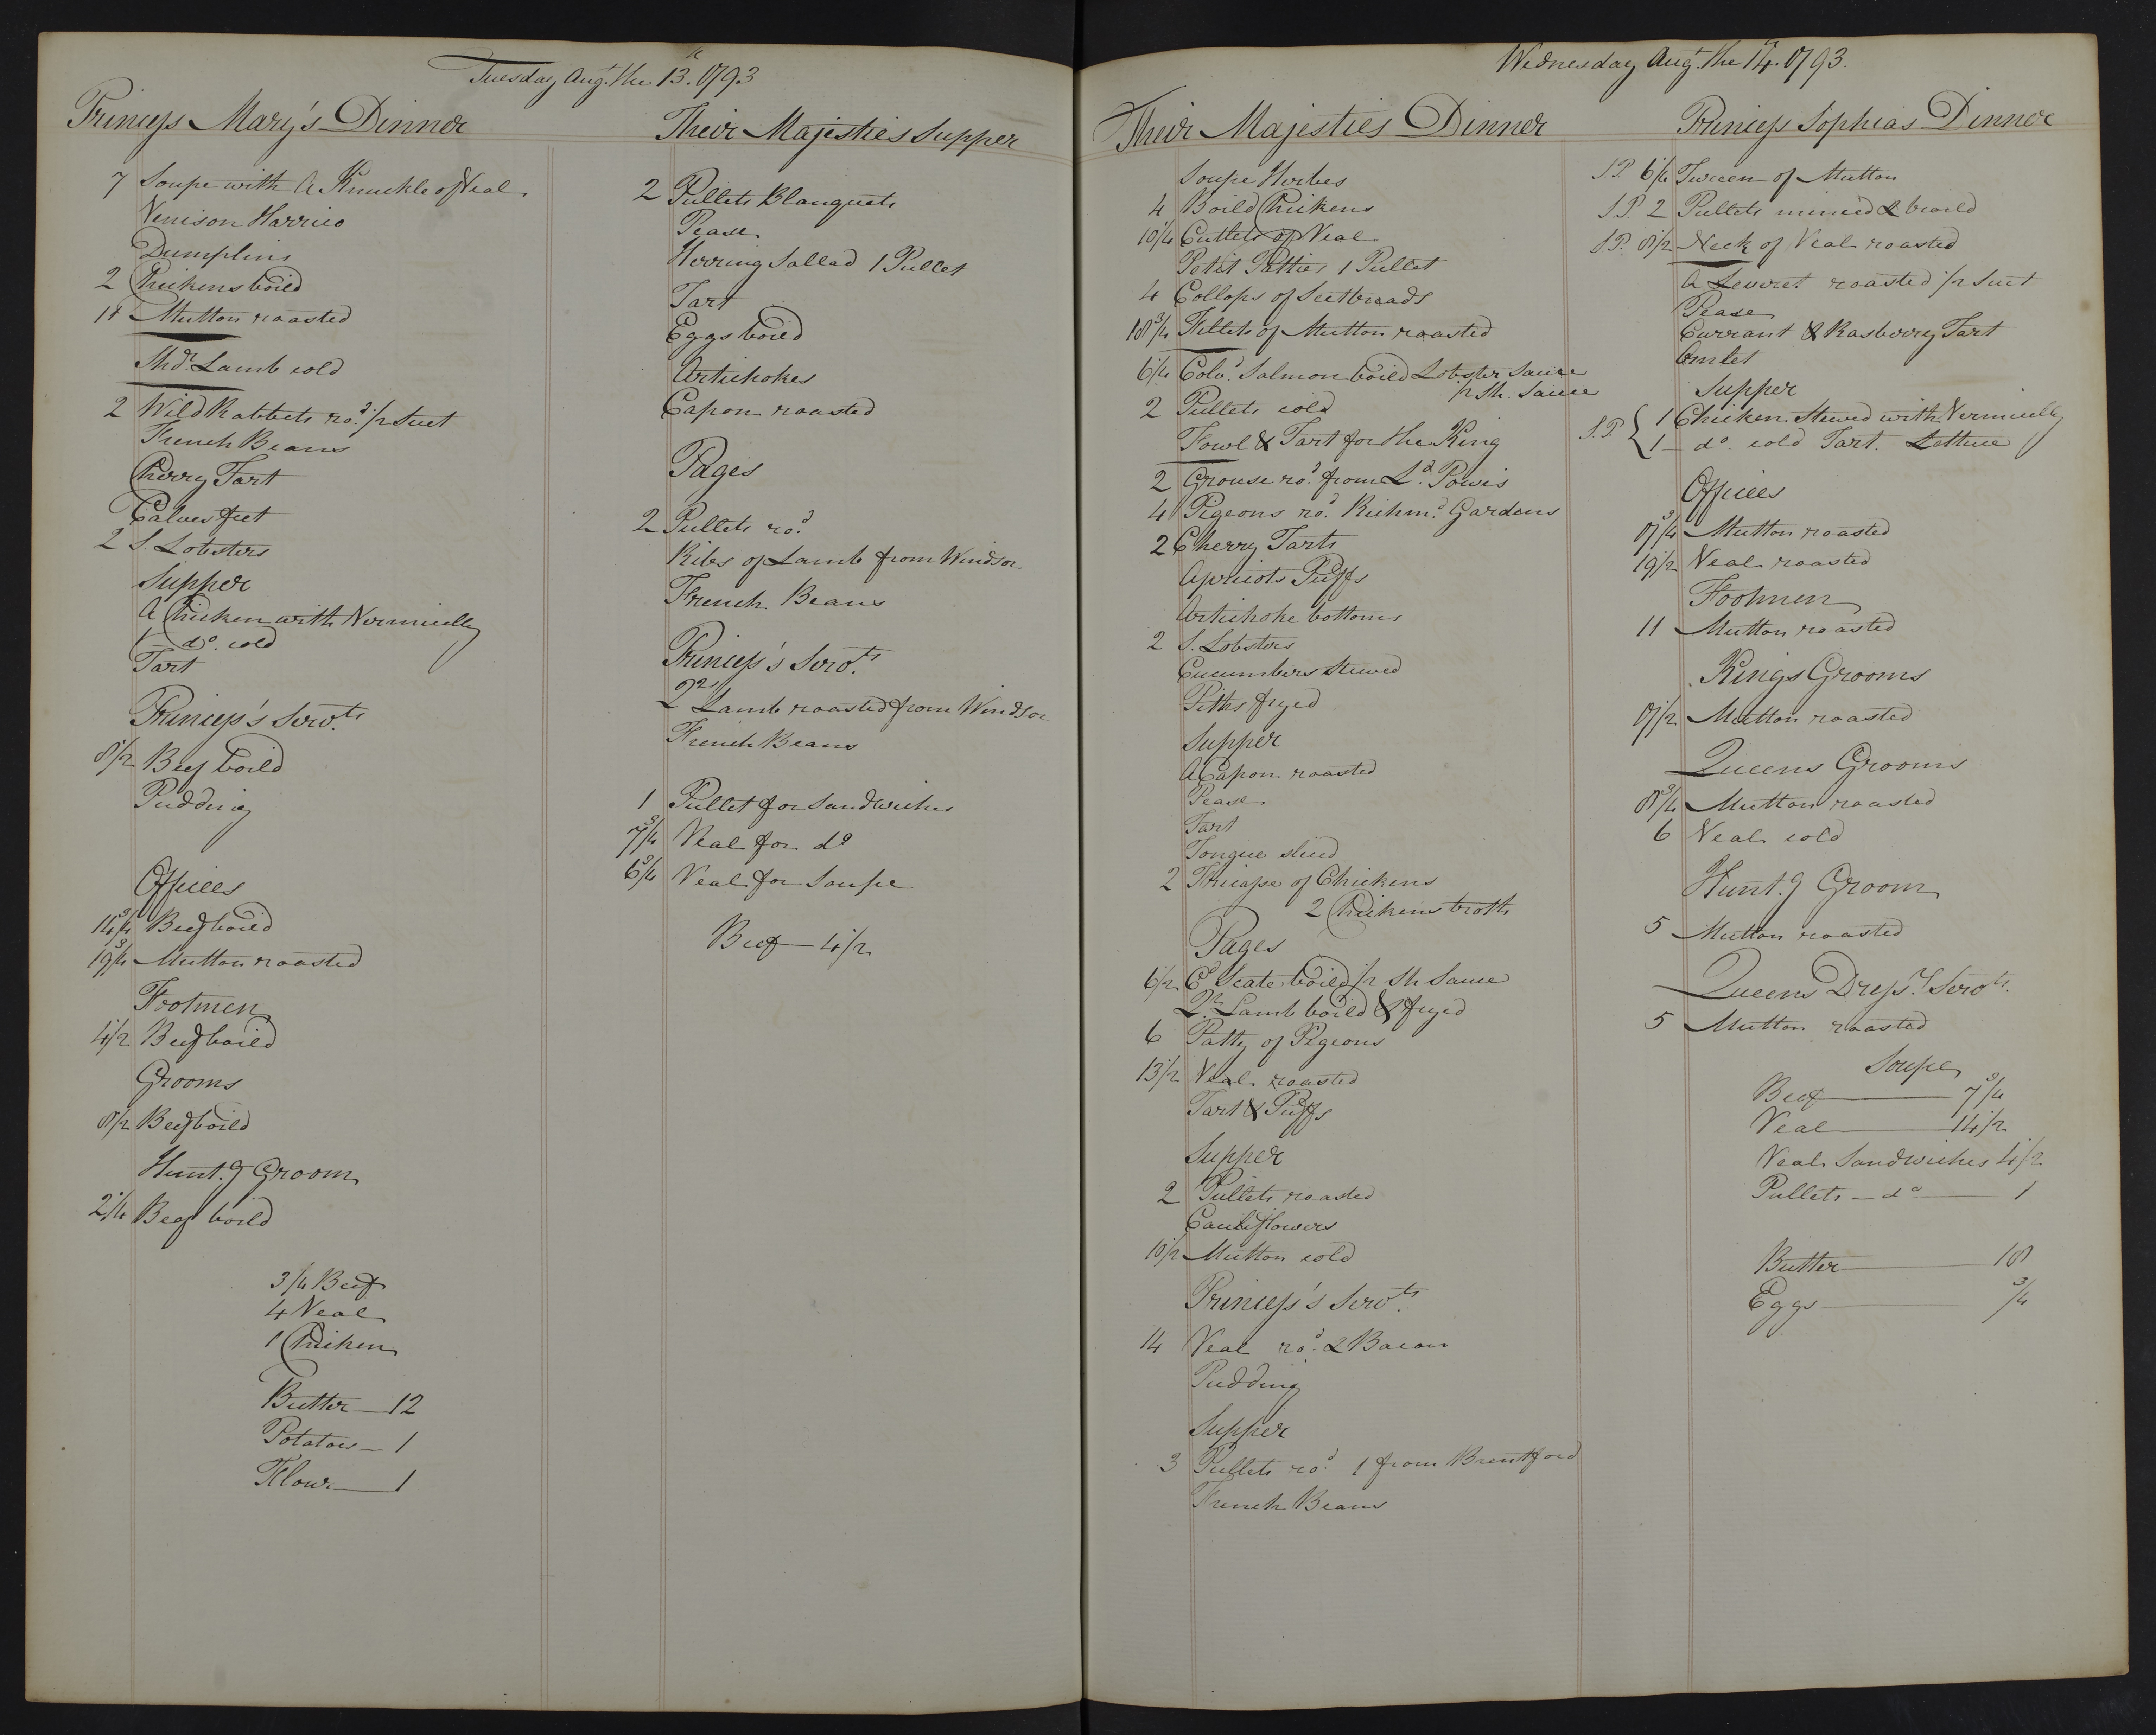 Tuesday Augt. the 13. 1793
Princess Mary's Dinner
7 Soupe with a Knuckle of Veal
Venison Harrico
Dumplins
2 Chickens boild
11 Mutton roasted
Lamb cold
2 Wild Rabbets rod. 1/2 Suet
French Beans
Cherry Tart
Calves feet
2 S. Lobsters
Supper
A Chicken with Vermicelly
1 do. cold
Tart
Princess's Servts.
8 1/2 Beef boild
Pudding
Offices
14 3/4 Beef boild
19 3/4 Mutton roasted
Footmen
4 1/2 Beef boild
Grooms
8 1/2 Beef boild
Hunt.g Groom
2 1/4 Beef boild
3/4 Beef
4 Veal
1 Chicken
Butter — 12
Potatoes — 1
Flour — 1
Their Majesties Supper
2 Pullets Blanquets
Pease
Herring Sallad 1 Pullet
Tart
Eggs boild
Artichokes
Capon roasted
Pages
2 Pullets rod.
Ribs of Lamb from Windsor
French Beans
Princess's Servts.
2 Qrs Lamb roasted from Windsor
French Beans
1 Pullet for Sandwiches
7 3/4 Veal for do
6 3/4 Veal for Soupe
Beef — 4 1/2
Wednesday Augt. the 14. 1793.
Their Majesties Dinner
Soupe Herbes
4 Boild Chickens
10 1/4 Cutlets of Veal
Petit Patties 1 Pullet
4 Collops of Seetbreads
18 3/4 Fillets of Mutton roasted
6 1/4 Salmon boild Lobster Sauce
1/2 Sh. Sauce
2 Pullets cold
Fowl & Tart for the King
2 Grouse rod. from Ld. Powis
4 Pigeons rod. Richmd. Gardens
2 Cherry Tarts
Apricots Puffs
Artichoke bottoms
2 S. Lobsters
Cucumbers Stewed
Piths fryed
Supper
A Capon roasted
Pease
Tart
Tongue sliced
2 of Chickens
2 Chickens broth
Pages
6 1/2 Cd Scate boild 1/2 Sh Sauce
Qr. Lamb boild & fryed
6 Patty of Pigeons
13 1/2 Veal roasted
Tart & Puffs
Supper
2 Pullets roasted
Cauliflowers
10 1/2 Mutton cold
Princess's Servts.
14 Veal rod. & Bacon
Pudding
Supper
3 Pullets rod. 1 from Brentford
French Beans
Princess Sophias Dinner
S.P. 6 1/4 Tureen of Mutton
S.P 2 Pullets minced & broild
S.P. 8 1/2 Neck of Veal roasted
A Leveret roasted 1/2 Suet
Pease
Currant & Rasberry Tart
Omlet
Supper
S.P. { 1 Chicken Stewed with Vermicelly
1 — do. cold Tart. Lettuce
Offices
17 3/4 Mutton roasted
19 1/2 Veal roasted
Footmen
11 Mutton roasted
Kings Grooms
Mutton roasted
Queens Grooms
Mutton roasted
6 Veal cold
Hunt.g Groom
5 Mutton roasted
Queens Dress.rs Servts.
5 Mutton roasted
Soupe
Beef — 7 3/4
Veal — 14 1/2
Veal Sandwiches 4 1/2
Pullets — do — 1
Butter — 18
Eggs — 3/4